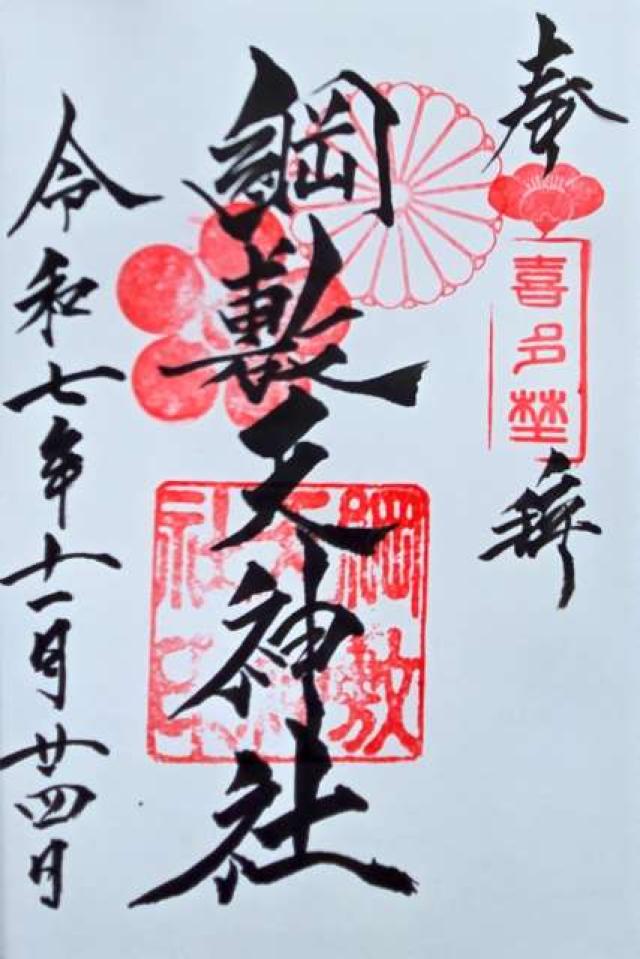 奉
喜多埜
拝
綱敷天神社
綱敷天神社印
令和七年十一月廿四日